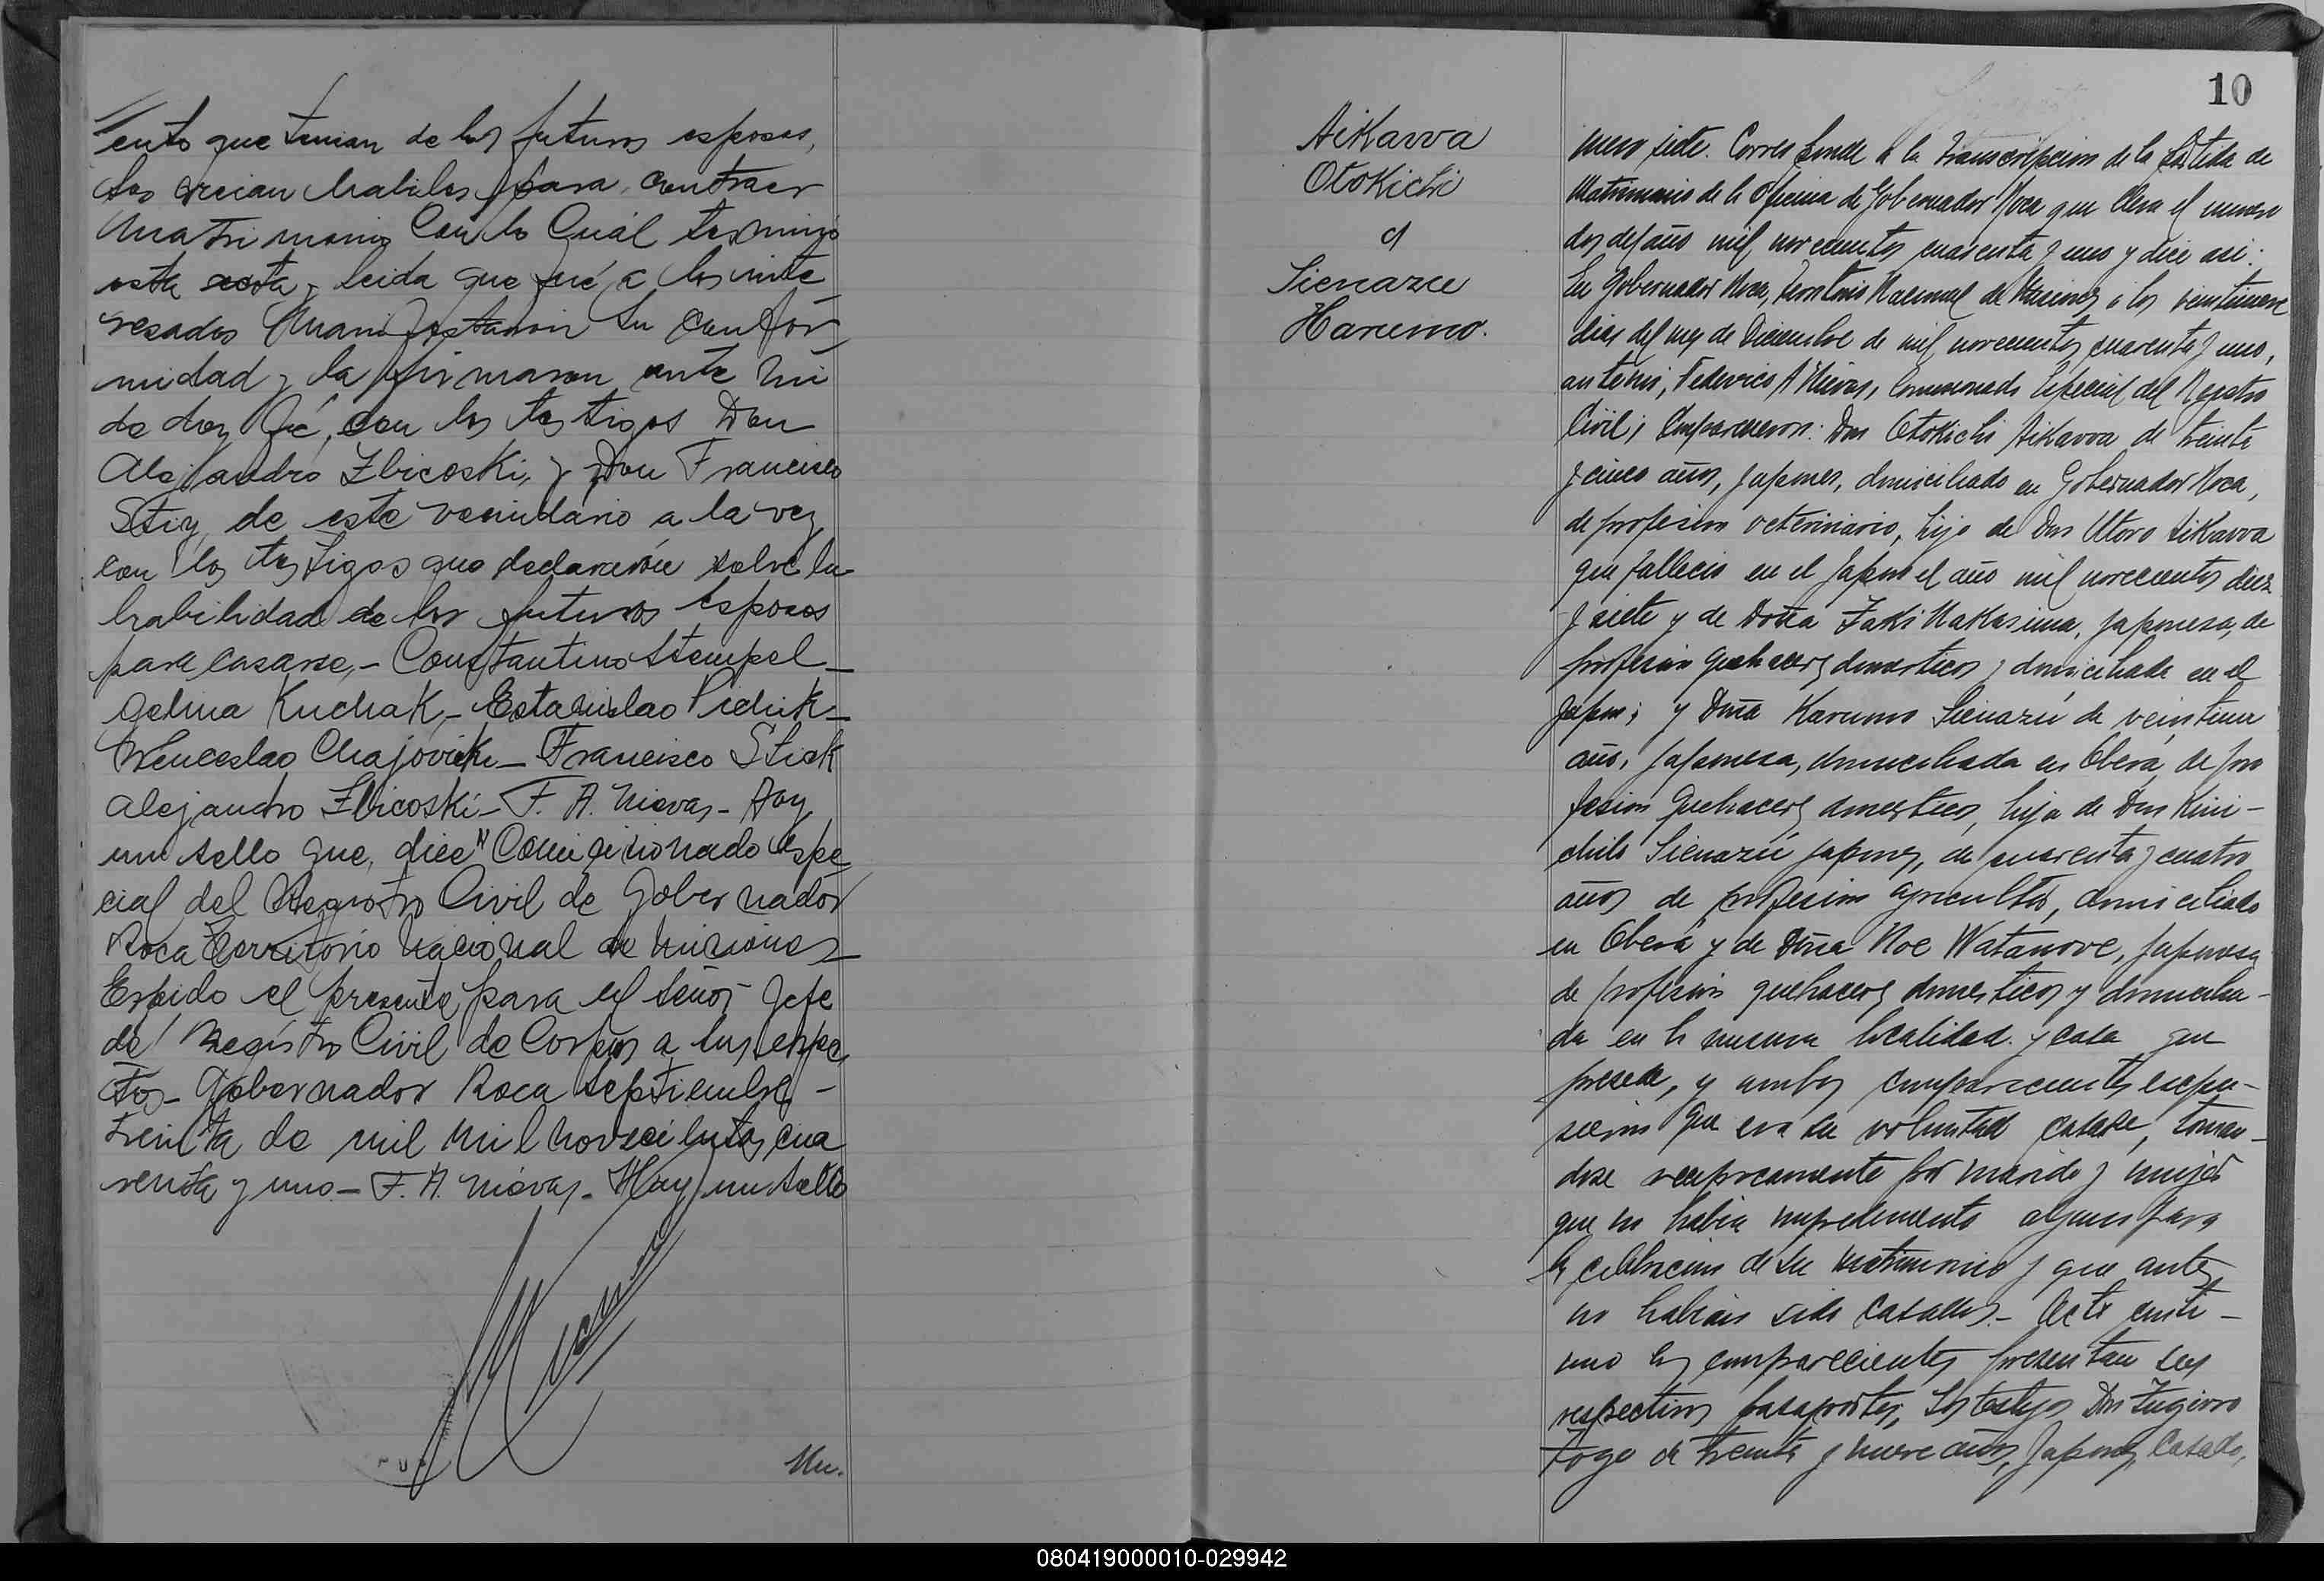 ento que tenian de los futuros esposos,
los creian habiles para contraer
Matrimonio Con lo Cuál terminó
esta acta y leida que fué a los inte
resados Manifestaron su confor
midad y la firmaron ante mi
de doy fé, con los testigos Don
Alejandro Zbicoski, y Don Francisco
Stiy, de este vecindario a la vez
con los testigos que declararón sobre la
habilidad de los futuros esposos
para casarse,- Constantino Stempel_
Gelina Kuchak_ Estanislao Piduk_
Wenceslao Chajóvichi_ Francisco Stick
Alejandro Zbicoski_ F. A. Nievas_ Hay
un sello que, dice "Comisionado espe
cial del Registro Civil de Gobernador
Roca Territorio Nacional de Misiones_
Espido el presente para el señor Jefe
del Registro Civil de Corpus a sus efec
tos_ Gobernador Roca Septiembre_
treinta de mil mil novecientos cua
renta y uno_ F. A. Nievas_ Hay un sello
Nu.
10
Aikawa
Otokichi
y
Sienazu
Harumo.
mero siete. Corresponde a la transcripcion de la Partida de
Matrimonio de la Oficina de Gobernador Roca que lleva el numero
dos del año mil novecientos cuarenta y uno y dice asi:
En Gobernador Roca, Territorio Nacional de Misiones a los veintinueve
dias del mes de Diciembre de mil novecientos cuarenta y uno,
ante mi, Federico A Nievas, Comisionado Especial del Registro
Civil; Comparecieron: Don Otokichi Aikawa de treinta
y cinco años, Japones, domiciliado en Gobernador Roca,
de profesion veterinario, hijo de Don Utoro Aikawa
que fallecio en el Japon el año mil novecientos diez
y siete y de Doña Zaki Nakasima, Japonesa, de
profesion quehaceres domesticos y domiciliada en el
Japon; y Doña Harumo Sienazú de veintiun
años, Japonesa, domiciliada en Oberá, de pro
fesion Quehaceres domesticos, hija de Don Kini-
chilo Sienazú Japones, de cuarenta y cuatro
años de profesion agricultor, domiciliado
en Oberá y de Doña Noe Watanove, Japonesa
de profesion quehaceres domesticos y domicilia-
da en la misma localidad. y casa que
presede, y ambos comparecientes expu-
sieron que era su voluntad casarse, toman-
dose reciprocamente por marido y mujer
que no habia impedimento alguno para
la celebracion de su matrimonio y que antes
no habian sido casados.- Acto conti-
nuo los comparecientes presentan sus
respectivos pasaportes, Los testigos Don Zugiorro
Togo de treinta y nueve años, Japones, Casado,
080419000010-029942